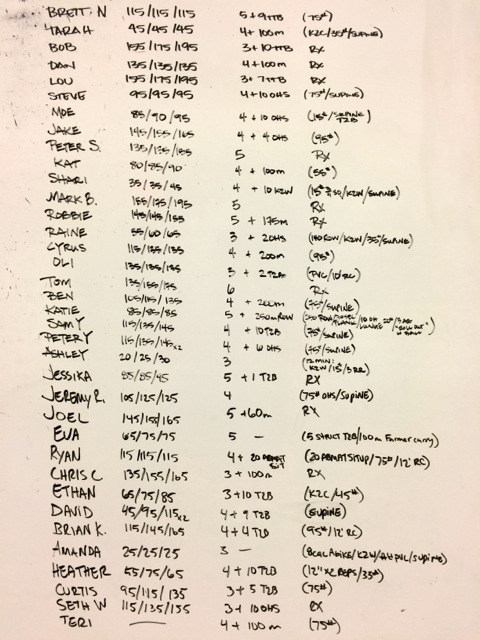 BRETT N 115/115/115 5+9 TTB (75#)
TARAH 45/45/45 4+100m (K2C/35#/SUPINE)
BOB 155/175/195 3+10 TTB RX
DAN 135/135/135 4+100m RX
LOU 155/175/195 3+7 TTB RX
STEVE 95/95/95 4+10 OHS (75#/SUPINE)
MOE 85/90/95 4+10 OHS (15#/SUPINE T2B)
JAKE 145/155/165 4+4 OHS (95#)
PETER S. 135/135/155 5 RX
KAT 80/85/90 4+100m (55#)
SHARI 35/35/45 4+10 K2W (15# /K2W/SUPINE)
MARK B. 155/175/195 5 RX
ROBBIE 145/145/155 5+175m RX
RAINE 55/60/65 3+2 OHS (180 ROW/K2W/35#/SUPINE)
CYRUS 115/135/135 4+200m (95#)
OLI 135/135/135 3+2 T2B (PVC/10' RC)
TOM 135/155/175 6 RX
BEN 105/115/135 4+200m (75#/SUPINE)
KATIE 85/85/85 5+250m ROW
SAM Y 115/135/145 4+10 T2B (75#/SUPINE)
PETER Y 115/135/145x2 4+6 OHS (75#/SUPINE)
ASHLEY 20/25/30 3 (12 MIN: K2W/15#/3 RR)
JESSIKA 85/85/95 5+1 T2B RX
JEREMY R. 105/125/125 4 (75# OHS/SUPINE)
JOEL 145/155/165 5+60m RX
EVA 65/75/75 5 — (5 STRICT T2B/100m Farmer carry)
RYAN 115/115/115 4+20 ABMAT SIT (20 ABMAT SITUP/75#/12' RC)
CHRIS C 135/155/165 3+100m RX
ETHAN 65/75/85 3+10 T2B (K2C/45#)
DAVID 45/95/115x2 4+9 T2B (SUPINE)
BRIAN K. 115/145/165 4+4 T2B (95#/12' RC)
AMANDA 25/25/25 3 — (8CAL ABIKE/K2W/ PVC/SUPINE)
HEATHER 55/75/65 4+10 T2B (12" x2 REPS/35#)
CURTIS 95/115/135 3+5 T2B (75#)
SETH W 115/135/155 3+10 OHS RX
TERI — 4+100m (75#)